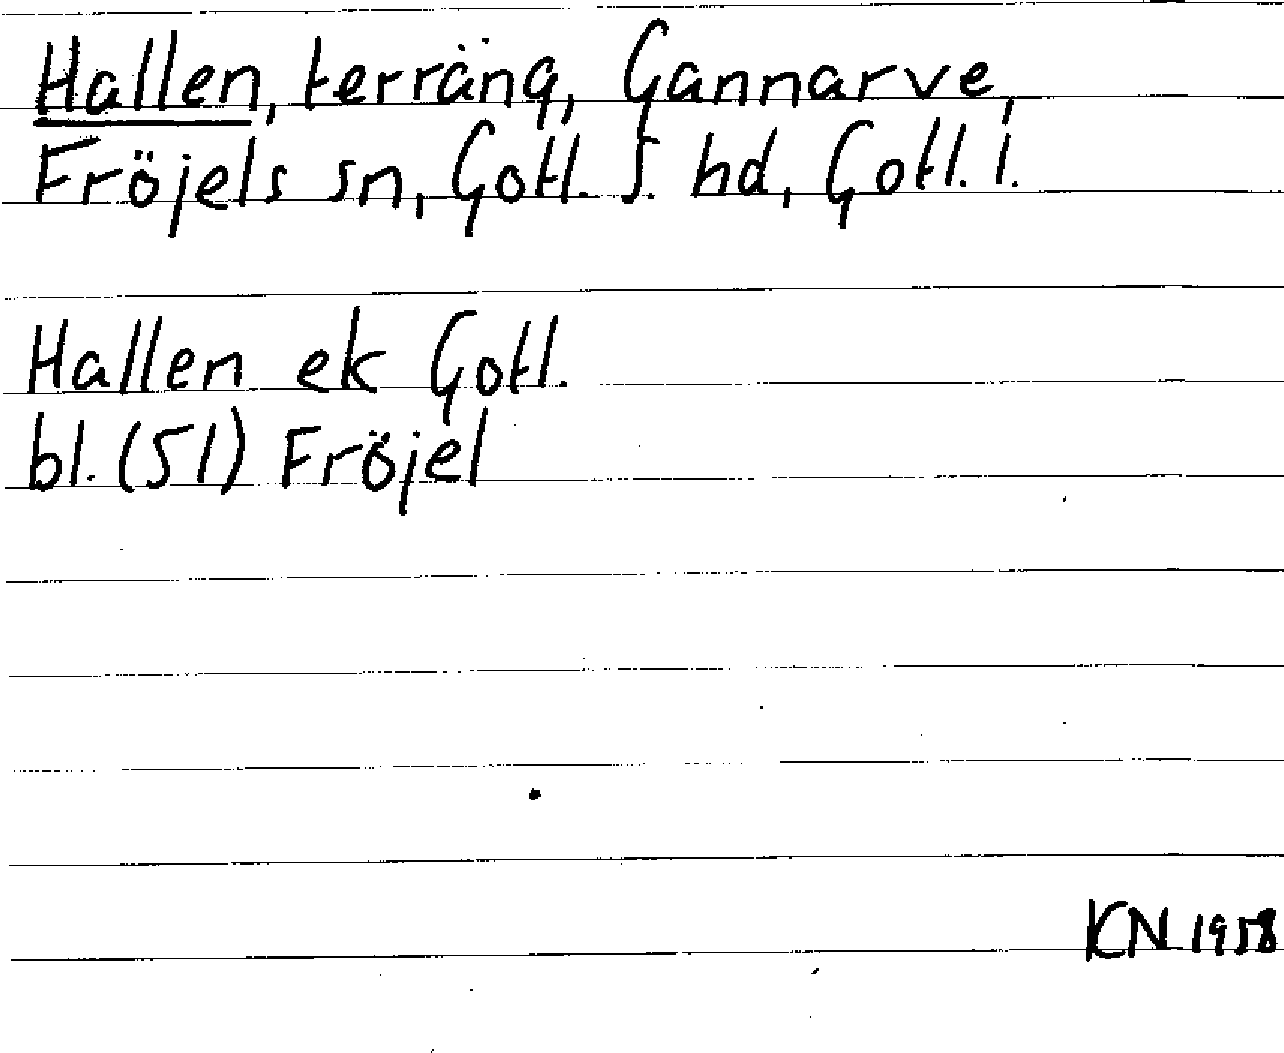 Hallen, terräng, Gannarve,
Fröjels sn, Gotl. S. hd, Gotl. l.
Hallen ek Gotl.
bl. (51) Fröjel
KN 1958